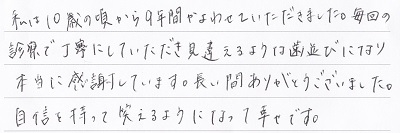 私は10歳の頃から9年間かよわせていただきました。毎回の
診察で丁寧にしていただき見違えるような歯並びになり
本当に感謝しています。長い間ありがとうございました。
自信を持って笑えるようになって幸せです。